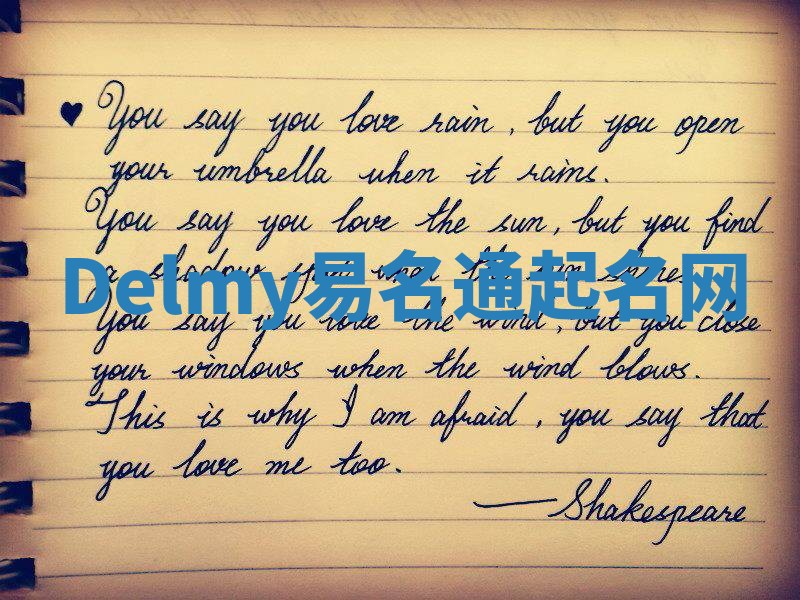 ♥ You say you love rain, but you open
your umbrella when it rains.
You say you love the sun, but you find
a shadow spot when the sun shines.
Delmy易名通起名网
You say you love the wind, but you close
your windows when the wind blows.
This is why I am afraid, you say that
you love me too.
—Shakespeare